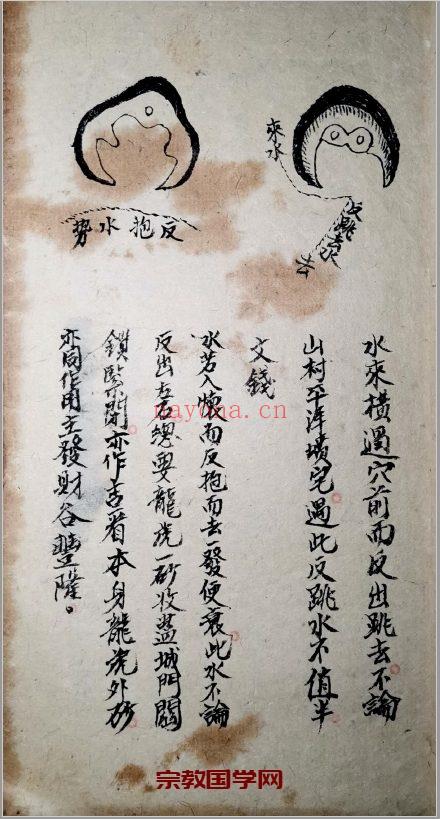 來水
反跳去水
去
反抱水勢
水來橫過穴前而反出跳去不論
山村平洋墳宅遇此反跳水不值半
文錢
水若入懷而反抱而去一發便衰此水不論
反出左右總要龍虎一砂收盖城門關
鎖緊閉亦作吉着本身龍虎外砂
亦同作用主發財谷豐隆。
nayona.cn
宗教国学网